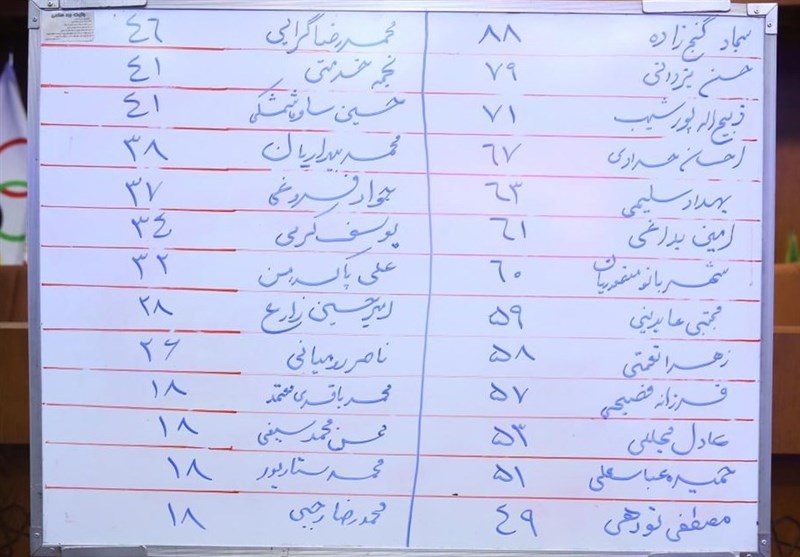 سجاد گنج زاده ۸۸
حسن یزدانی ۷۹
ذبیح اله پورشیب ۷۱
احسان حدادی ۶۷
بهداد سلیمی ۶۳
امین بداغی ۶۱
شهربانو منصوریان ۶۰
مجتبی عابدینی ۵۹
زهرا نعمتی ۵۸
فرزانه فصیحی ۵۷
عادل مجللی ۵۳
حمیده عباسعلی ۵۱
مصطفی تودهی ۴۹
محمدرضا گرایی ۴٦
نجمه خدمتی ٤۱
حسین ساوه شمشکی ٤۱
محمد بیداریان ۳۸
جواد فروغی ۳۷
یوسف کرمی ۳٤
علی پاکدامن ۳۲
امیرحسین زارع ۲۸
ناصر رومیانی ۲۶
محمدباقری معتمد ۱۸
محسن محمدسیفی ۱۸
محمد ستارپور ۱۸
محمدرضا رجبی ۱۸